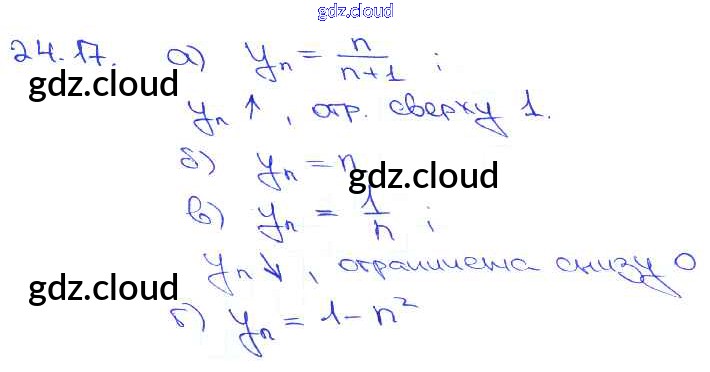 gdz.cloud
24.17. а) yₙ = n/(n+1) ;
gdz.cloud
yₙ ↑, огр. сверху 1.
б) yₙ = n
gdz.cloud
в) yₙ = 1/n ;
yₙ ↓, ограничена снизу 0
gdz.cloud
г) yₙ = 1 - n²